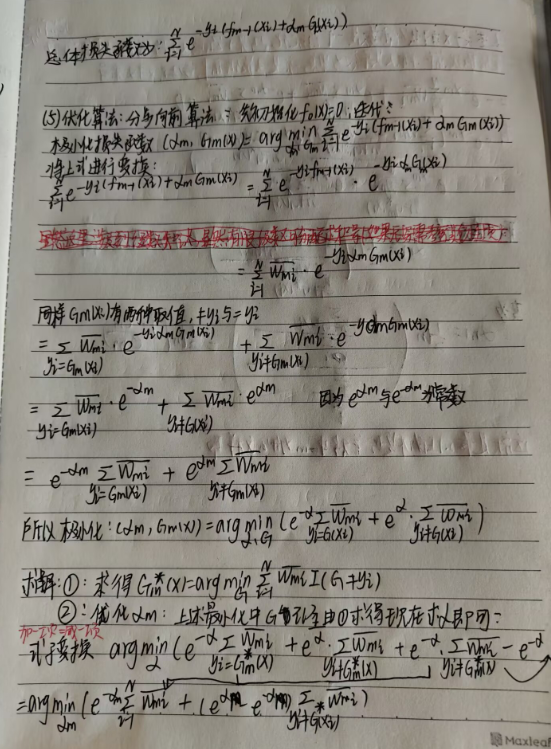 总体损失函数为: Σ_{i=1}^{N} e^{-yi(fm-1(xi)+αmGm(xi))}
(5)优化算法:分步向前算法:先初始化f0(x)=0,迭代:
极小化损失函数 (αm, Gm(x))= arg min_{α,Gm} Σ_{i=1}^{N} e^{-yi(fm-1(xi)+αmGm(xi))}
将上式进行变换:
Σ_{i=1}^{N} e^{-yi(fm-1(xi)+αmGm(xi))} = Σ_{i=1}^{N} e^{-yifm-1(xi)} · e^{-yiαmGm(xi)}
= Σ_{i=1}^{N} W̄mi · e^{-yiαmGm(xi)}
同样Gm(xi)有两种取值,≠yi与=yi
= Σ_{yi=Gm(xi)} W̄mi · e^{-yiαmGm(xi)} + Σ_{yi≠Gm(xi)} W̄mi · e^{-yiαmGm(xi)}
= Σ_{yi=Gm(xi)} W̄mi · e^{-αm} + Σ_{yi≠Gm(xi)} W̄mi · e^{αm} 因为e^{αm}与e^{-αm}为常数
= e^{-αm} Σ_{yi=Gm(xi)} W̄mi + e^{αm} Σ_{yi≠Gm(xi)} W̄mi
所以极小化:(αm, Gm(x))=arg min_{α,G} (e^{-α} Σ_{yi=G(xi)} W̄mi + e^{α} · Σ_{yi≠G(xi)} W̄mi)
求解:①:求得Gm*(x)=arg min_G Σ_{i=1}^{N} W̄mi I(G≠yi)
②:优化αm:上求最小化中G已经由①求得现在求α即可:
加一次=减一次
式子变换 arg min_α (e^{-α} Σ_{yi=Gm*(x)} W̄mi + e^{α} · Σ_{yi≠Gm*(x)} W̄mi + e^{-α} · Σ_{yi≠Gm*(x)} W̄mi - e^{-α}
=arg min_{αm} (e^{-αm} Σ_{i=1}^{N} W̄mi + (e^{αm} e^{-αm}) Σ_{yi≠Gm*(xi)} W̄mi)
Maxleaf